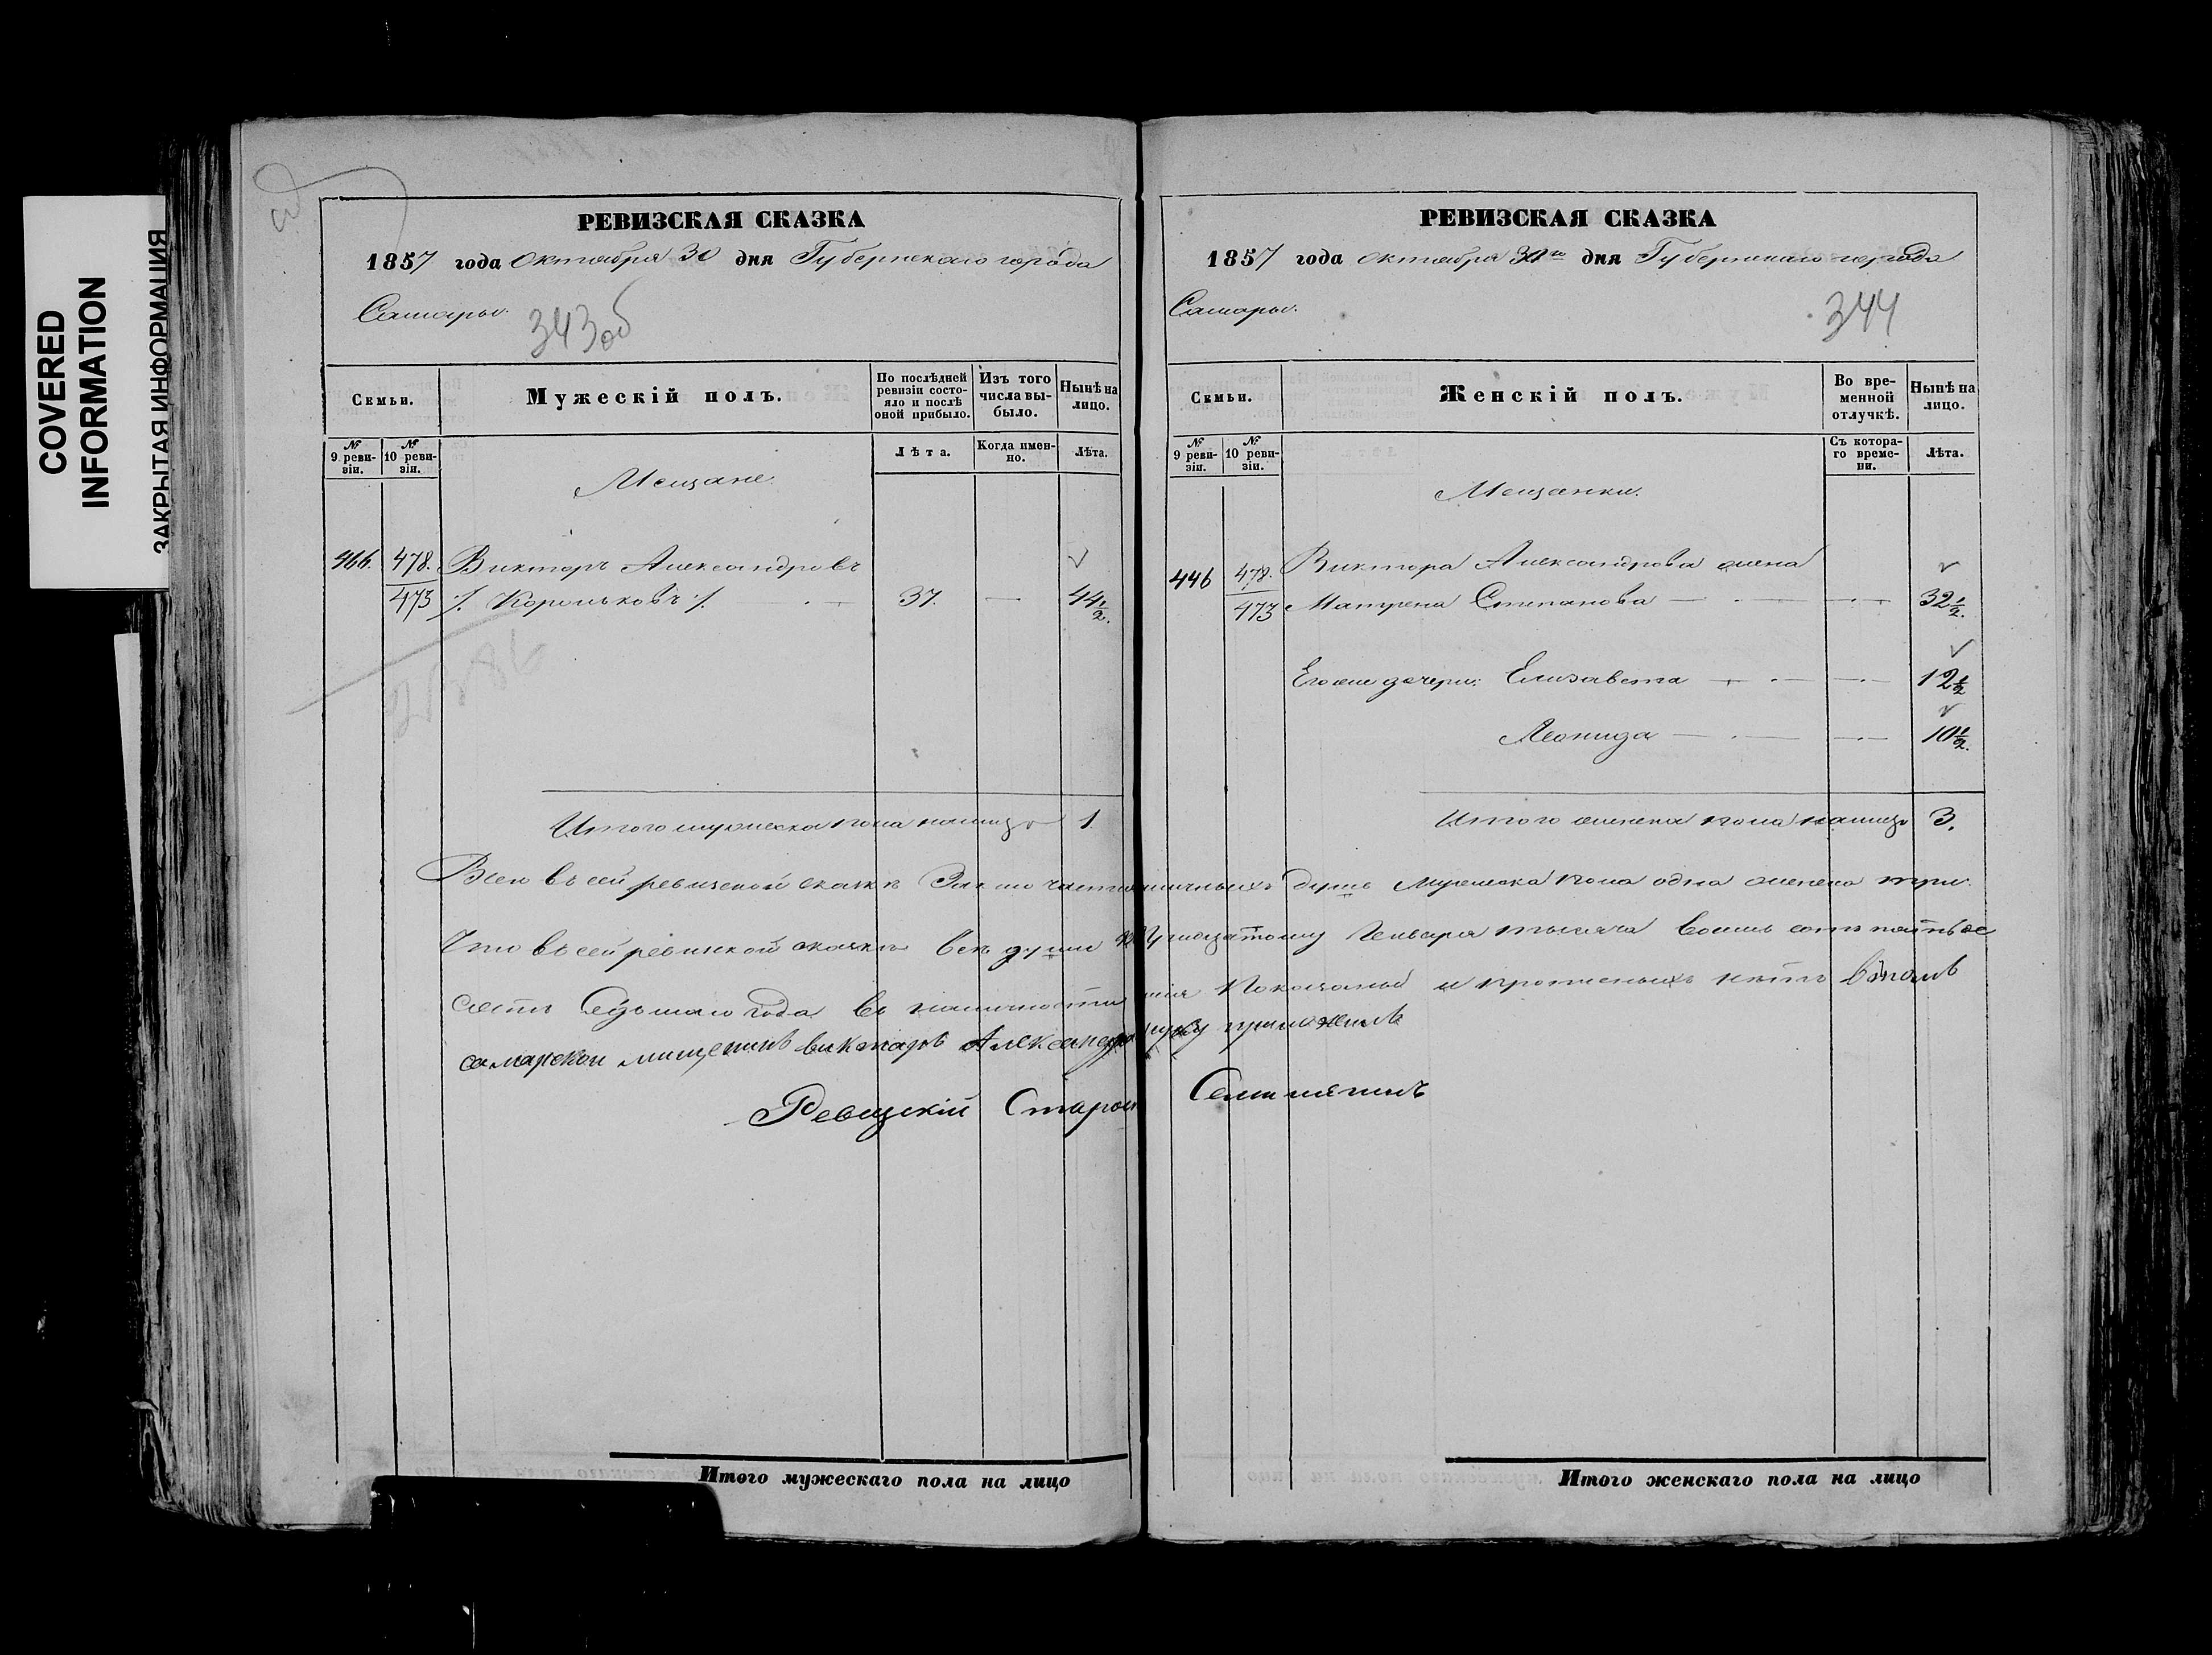 COVERED
INFORMATION
ЗАКРЫТАЯ ИНФОРМАЦИЯ
РЕВИЗСКАЯ СКАЗКА
1857 года Октября 30 дня Губернскаго города
Самары.
343об
Семьи.
Мужескій полъ.
По послѣдней ревизіи состо-
яло и послѣ
оной прибыло.
Изъ того
числа вы-
было.
Нынѣ на
лицо.
№
9 реви-
зіи.
№
10 реви-
зіи.
Лѣта.
Когда имен-
но.
Лѣта.
Мещане.
466. 478. Викторъ Александровъ
473 /. Корольковъ /. 37. — 44½.
Итого мужеска пола налицо 1.
РЕВИЗСКАЯ СКАЗКА
1857 года Октября 30го дня Губернскаго города
Самары.
344
Семьи.
Женскій полъ.
Во вре-
менной
отлучкѣ.
Нынѣ на
лицо.
№
9 реви-
зіи.
№
10 реви-
зіи.
Съ котора-
го време-
ни.
Лѣта.
Мещанки.
446 478. Виктора Александрова жена
473 Матрена Степанова — 32½.
Его же дочери: Елизавета — 12½
Леонида — 10½.
Итого женска пола налицо 3.
Всего въ сей ревизской сказкѣ наличныхъ душъ мужеска пола одна женска три.
Что въ сей ревизской сказкѣ всѣ души к Тридцатому Генваря тысяча восемь сотъ пятьде
сятъ Седьмаго года въ наличности показаны и пропущенныхъ нѣтъ въ томъ
самарскои мищенинъ викторъ Александровъ руку приложилъ
Ревизскій Старо
Итого мужескаго пола на лицо
Итого женскаго пола на лицо